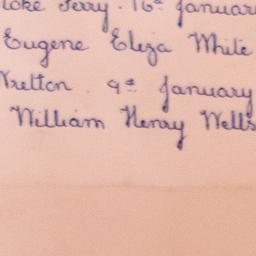 Ferry. 16th January
Eugene Eliza White
9th January
William Henry Wells